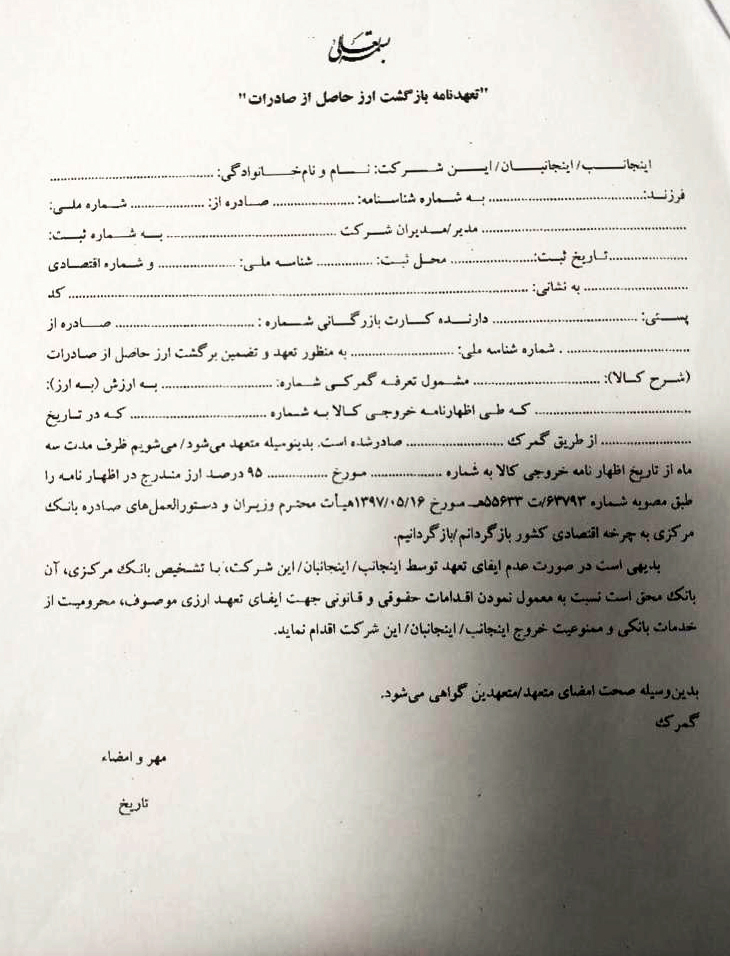 بسمه تعالی
"تعهدنامه بازگشت ارز حاصل از صادرات"
اینجانب/ اینجانبان/ این شرکت: نام و نام‌خانوادگی: ........................................
فرزند:........................................ به شماره شناسنامه: .................... صادره از: .................. شماره ملی:
........................................ مدیر/مدیران شرکت ........................................ به شماره ثبت:
....................تاریخ ثبت:.................... محل ثبت: .............. شناسه ملی: .................. و شماره اقتصادی
.......................... به نشانی: ........................................................................................ کد
پستی: ................................... دارنده کارت بازرگانی شماره : ................................... صادره از
............................... . شماره شناسه ملی: ......................... به منظور تعهد و تضمین برگشت ارز حاصل از صادرات
(شرح کالا): ............................... مشمول تعرفه گمرکی شماره: ........................... به ارزش (به ارز):
........................................ که طی اظهارنامه خروجی کالا به شماره ................................... که در تاریخ
...................... از طریق گمرک ........................ صادرشده است. بدینوسیله متعهد می‌شود/ می‌شویم ظرف مدت سه
ماه از تاریخ اظهار نامه خروجی کالا به شماره .................. مورخ ................ ۹۵ درصد ارز مندرج در اظهار نامه را
طبق مصوبه شماره ۶۳۷۹۳/ت ۵۵۶۳۳هـ مورخ ۱۳۹۷/۰۵/۱۶هیأت محترم وزیران و دستورالعمل‌های صادره بانک
مرکزی به چرخه اقتصادی کشور بازگردانم/بازگردانیم.
بدیهی است در صورت عدم ایفای تعهد توسط اینجانب/ اینجانبان/ این شرکت، با تشخیص بانک مرکزی، آن
بانک محق است نسبت به معمول نمودن اقدامات حقوقی و قانونی جهت ایفای تعهد ارزی موصوف، محرومیت از
خدمات بانکی و ممنوعیت خروج اینجانب/ اینجانبان/ این شرکت اقدام نماید.
بدین‌وسیله صحت امضای متعهد/متعهدین گواهی می‌شود.
گمرک
مهر و امضاء
تاریخ